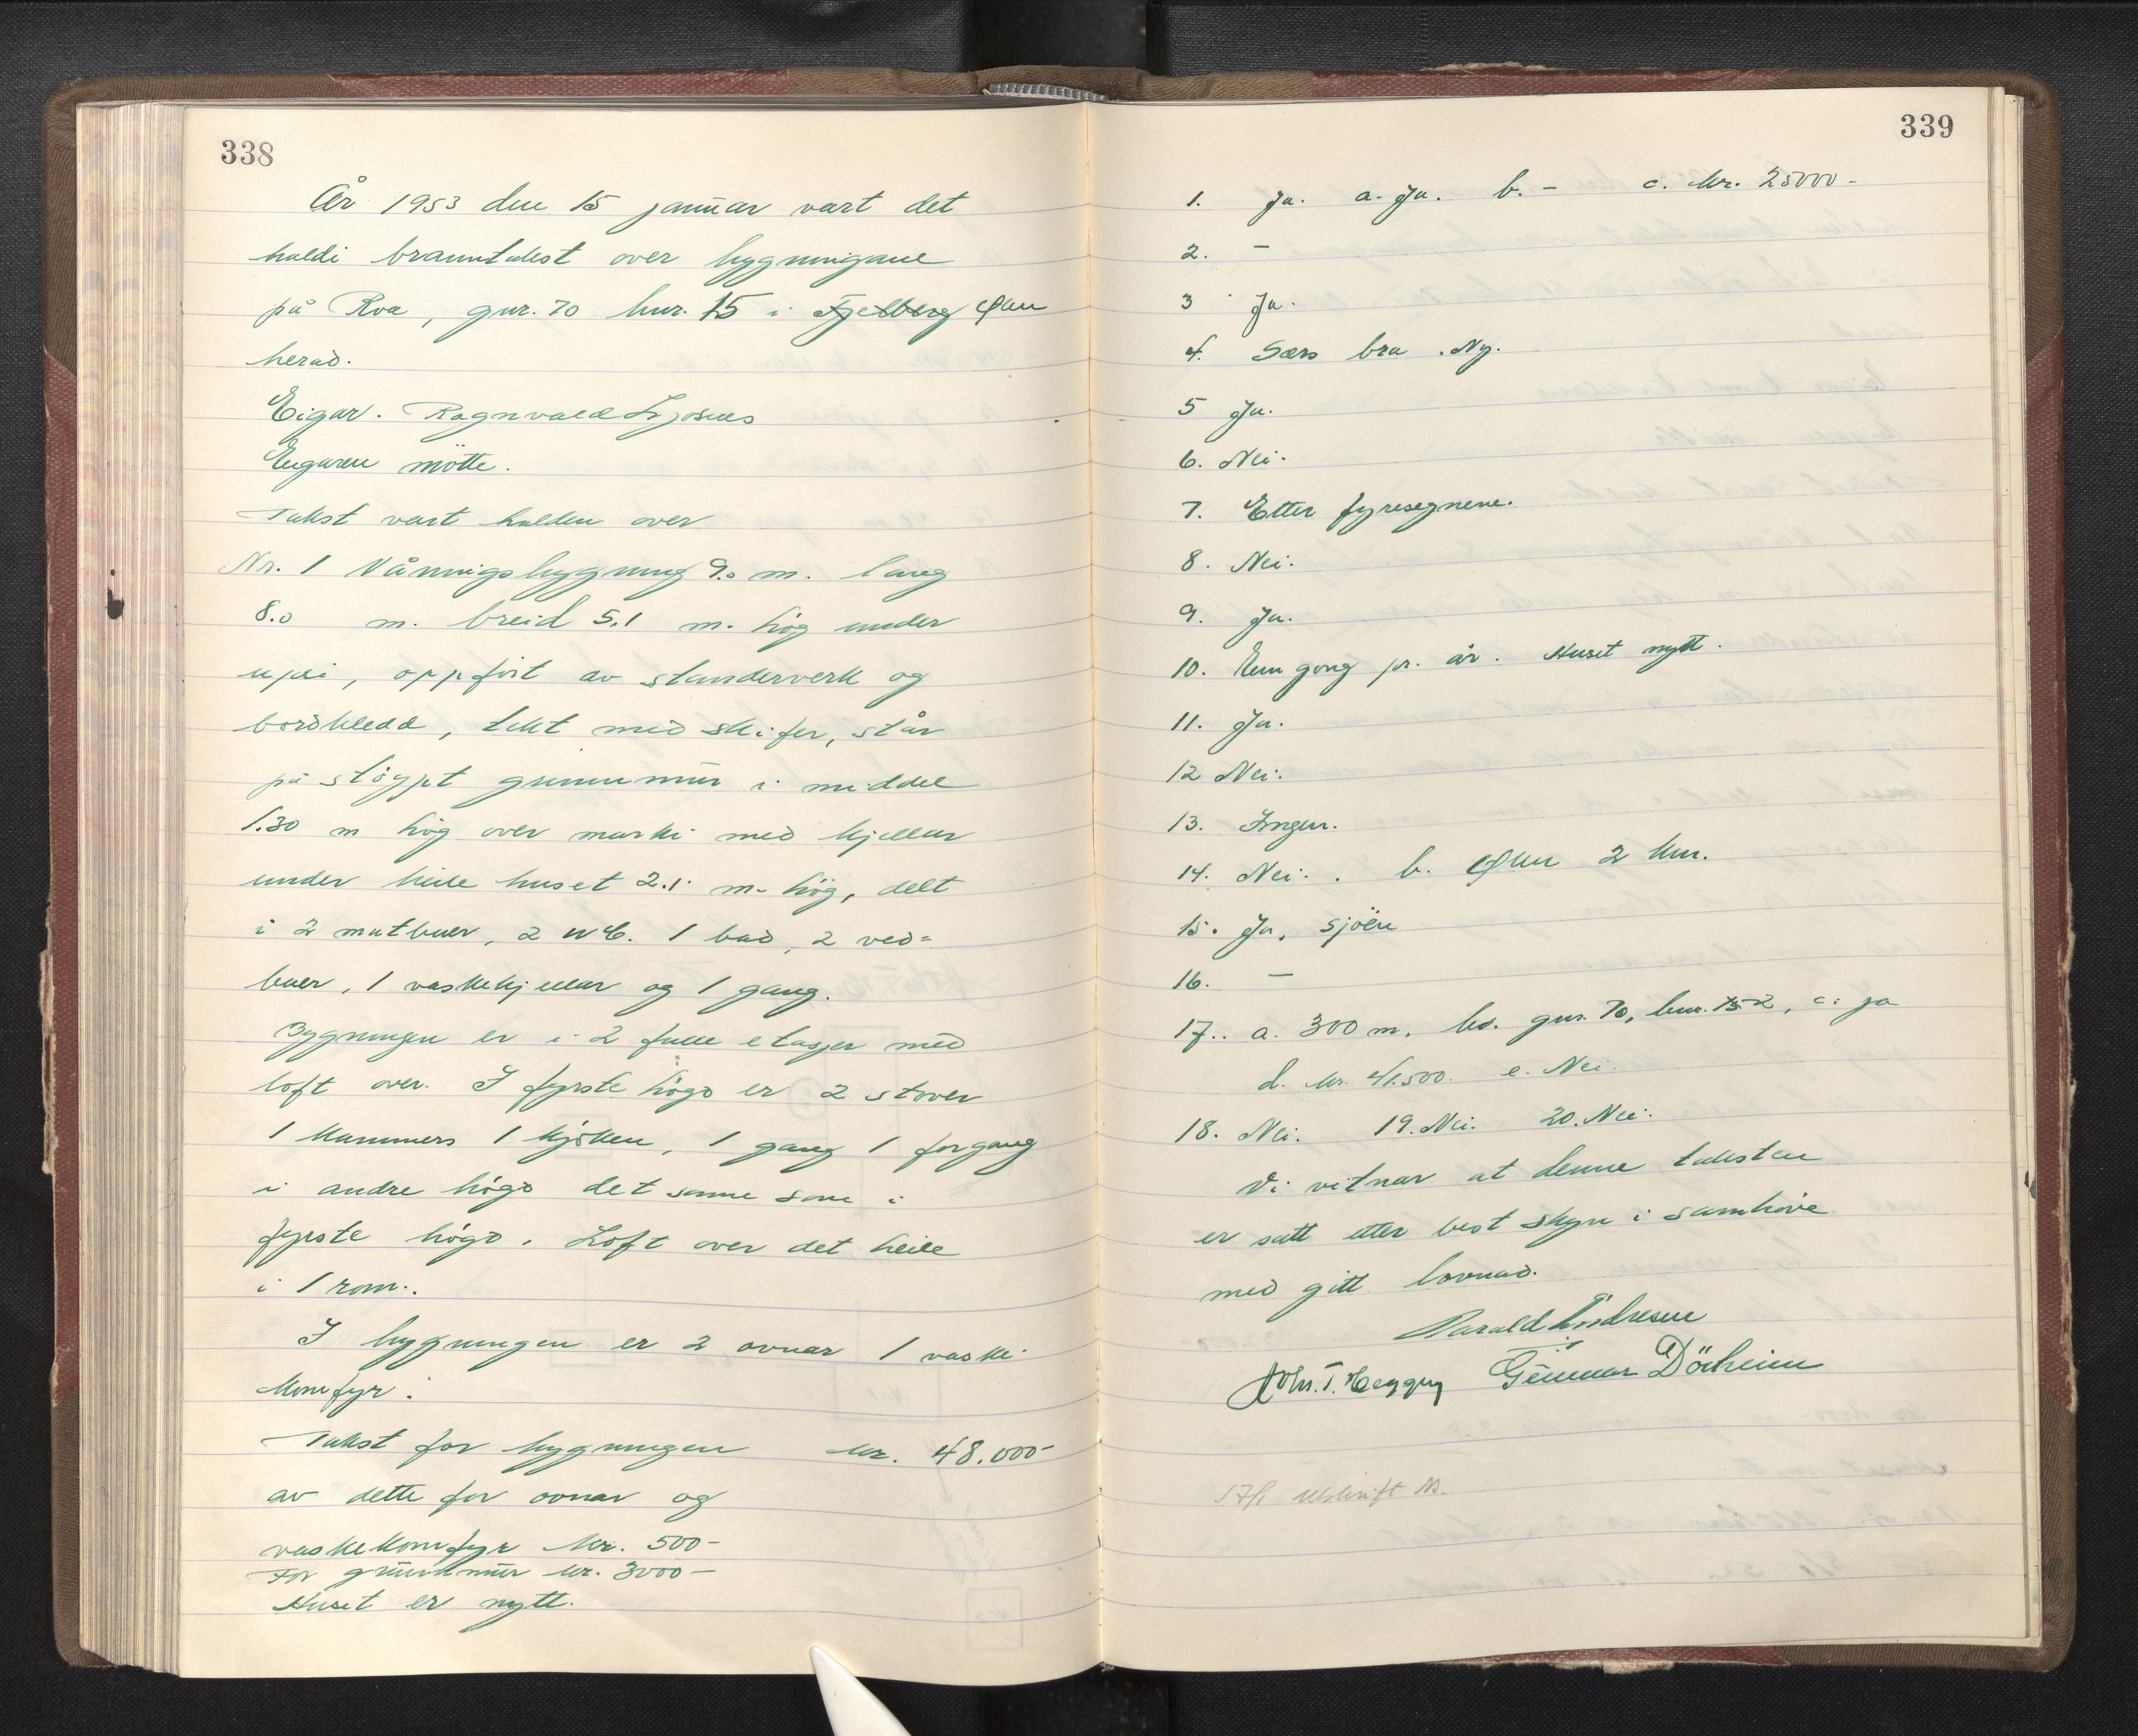 338
År 1953 den 15 januar vart det
haldi branntakst over bygningane
på Roa, gnr. 70 bnr. 15 i Fjelberg Ølen
herad.
Eigar. Ragnvald
Eigaren møtte.
Takst vart halden over
Nr. 1 Våningsbygning 9.0 m. lang
8.0 m. breid 5.1 m. høg under
upsi, oppført av standerverk og
bordkledd, tekt med skifer, står
på støypt grunnmur i middel
1.30 m høg over marki med kjellar
under heile huset 2.1 m. høg, delt
i 2 matbuer, 2 WC. 1 bad, 2 ved=
buer, 1 vaskekjellar og 1 gang.
Bygningen er i 2 fulle etasjer med
loft over. I fyrste høgd er 2 stover
1 kammers 1 kjøken, 1 gang 1 forgang
i andre høgd det same som i
fyrste høgd. Loft over det heile
i 1 rom.
I bygningen er 2 ovnar 1 vaske
komfyr.
Takst for bygningen kr. 48.000-
av dette for ovnar og
vaskekomfyr kr. 500-
For grunnmur kr. 3000-
Huset er nytt.
339
1. Ja. a. Ja. b. - c. kr. 25000-
2. -
3 Ja.
4. Særs bra. Ny.
5 Ja.
6. Nei.
7. Etter fyresegnene.
8. Nei.
9. Ja.
10. Ein gong pr. år. Huset nytt.
11. Ja.
12 Nei.
13. Ingen.
14. Nei. b. Ølen 2 km.
15. Ja, sjøen
16. -
17. a. 300 m. b. gnr. 70, bnr. 15 2, c. ja
d. kr. 41.500. e. Nei.
18. Nei. 19. Nei. 20. Nei.
Vi vitnar at denne taksten
er sett etter best skyn i samhøve
med gitt lovnad.
Harald Endresen
Joh. T. Heggen Gunnar Dörheim
17/1 utskrift